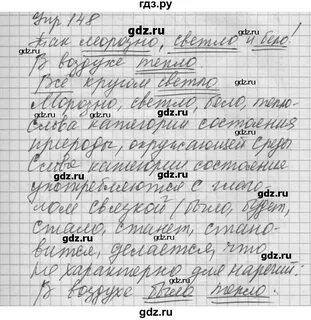 гдз.ру
Упр 148
Как морозно, светло и бело!
В воздухе тепло
Всё кругом светло
Морозно, светло, бело, тепло-
слова категории состояния
природы, окружающей среды
Слова категории состояние
употребляются с глаго-
лом связкой (было, будет,
стало, станет, стано-
вится, делается, что
не характерно для наречий:
В воздухе было тепло.
gdz.ru
gdz.ru
gdz.ru
gdz.ru
gdz.ru
gdz.ru
gdz.ru
gdz.ru